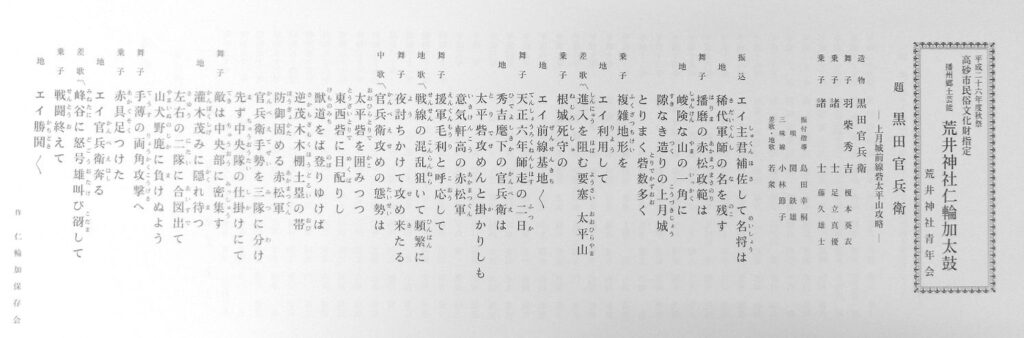 平成二十六年度秋祭
高砂市民俗文化財指定
播州郷土芸能
荒井神社仁輪加太鼓
荒井神社青年会
題 黒田官兵衛
―上月城前線砦太平山攻略―
造物 黒田官兵衛
舞子 羽柴秀吉 榎本英衣
乗子 諸士 足立真優
乗子 諸士 藤久雄士
振付指導 島田幸桐
唄 関鉄雄
三味線 小林節子
差歌・地歌 若衆
振込 エイ主君補佐して名将は
地 稀代軍師の名を残す
舞子 播磨の赤松政範は
地 峻険な山の一角に
隙なき造りの上月城
とりまく砦数多く
乗子 複雑地形を
地 エイ利用して
差歌〽進入を阻む要塞 太平山
乗子 根城死守の
地 エイ前線基地〱
舞子 天正六年師走の二日
地 秀吉麾下の官兵衛は
太平砦攻めんと掛かりしも
意気軒高の赤松軍
舞子 援軍毛利と呼応して
地歌〽戦線の混乱狙いて頻繁に
舞子 夜討ちかけて攻め来たる
中歌〽官兵衛攻めの態勢は
太平砦を囲みつつ
東西砦に目配りし
獣道をば登りゆけば
逆茂木木棚土塁の帯
防御固める赤松軍
官兵衛手勢を三隊に分け
先ず中央隊の仕掛けにて
舞子 敵は中央部に密集す
地 灌木茂みに隠れ待つ
左右の二隊に合図出て
山犬野鹿に負けぬよう
舞子 手薄の両角攻撃へ
乗子 赤具足つけた
地 エイ官兵衛奔る
差歌〽峰谷に怒号雄叫び谺して
乗子 戦闘終えて
地 エイ勝鬨〱
作 仁輪加保存会